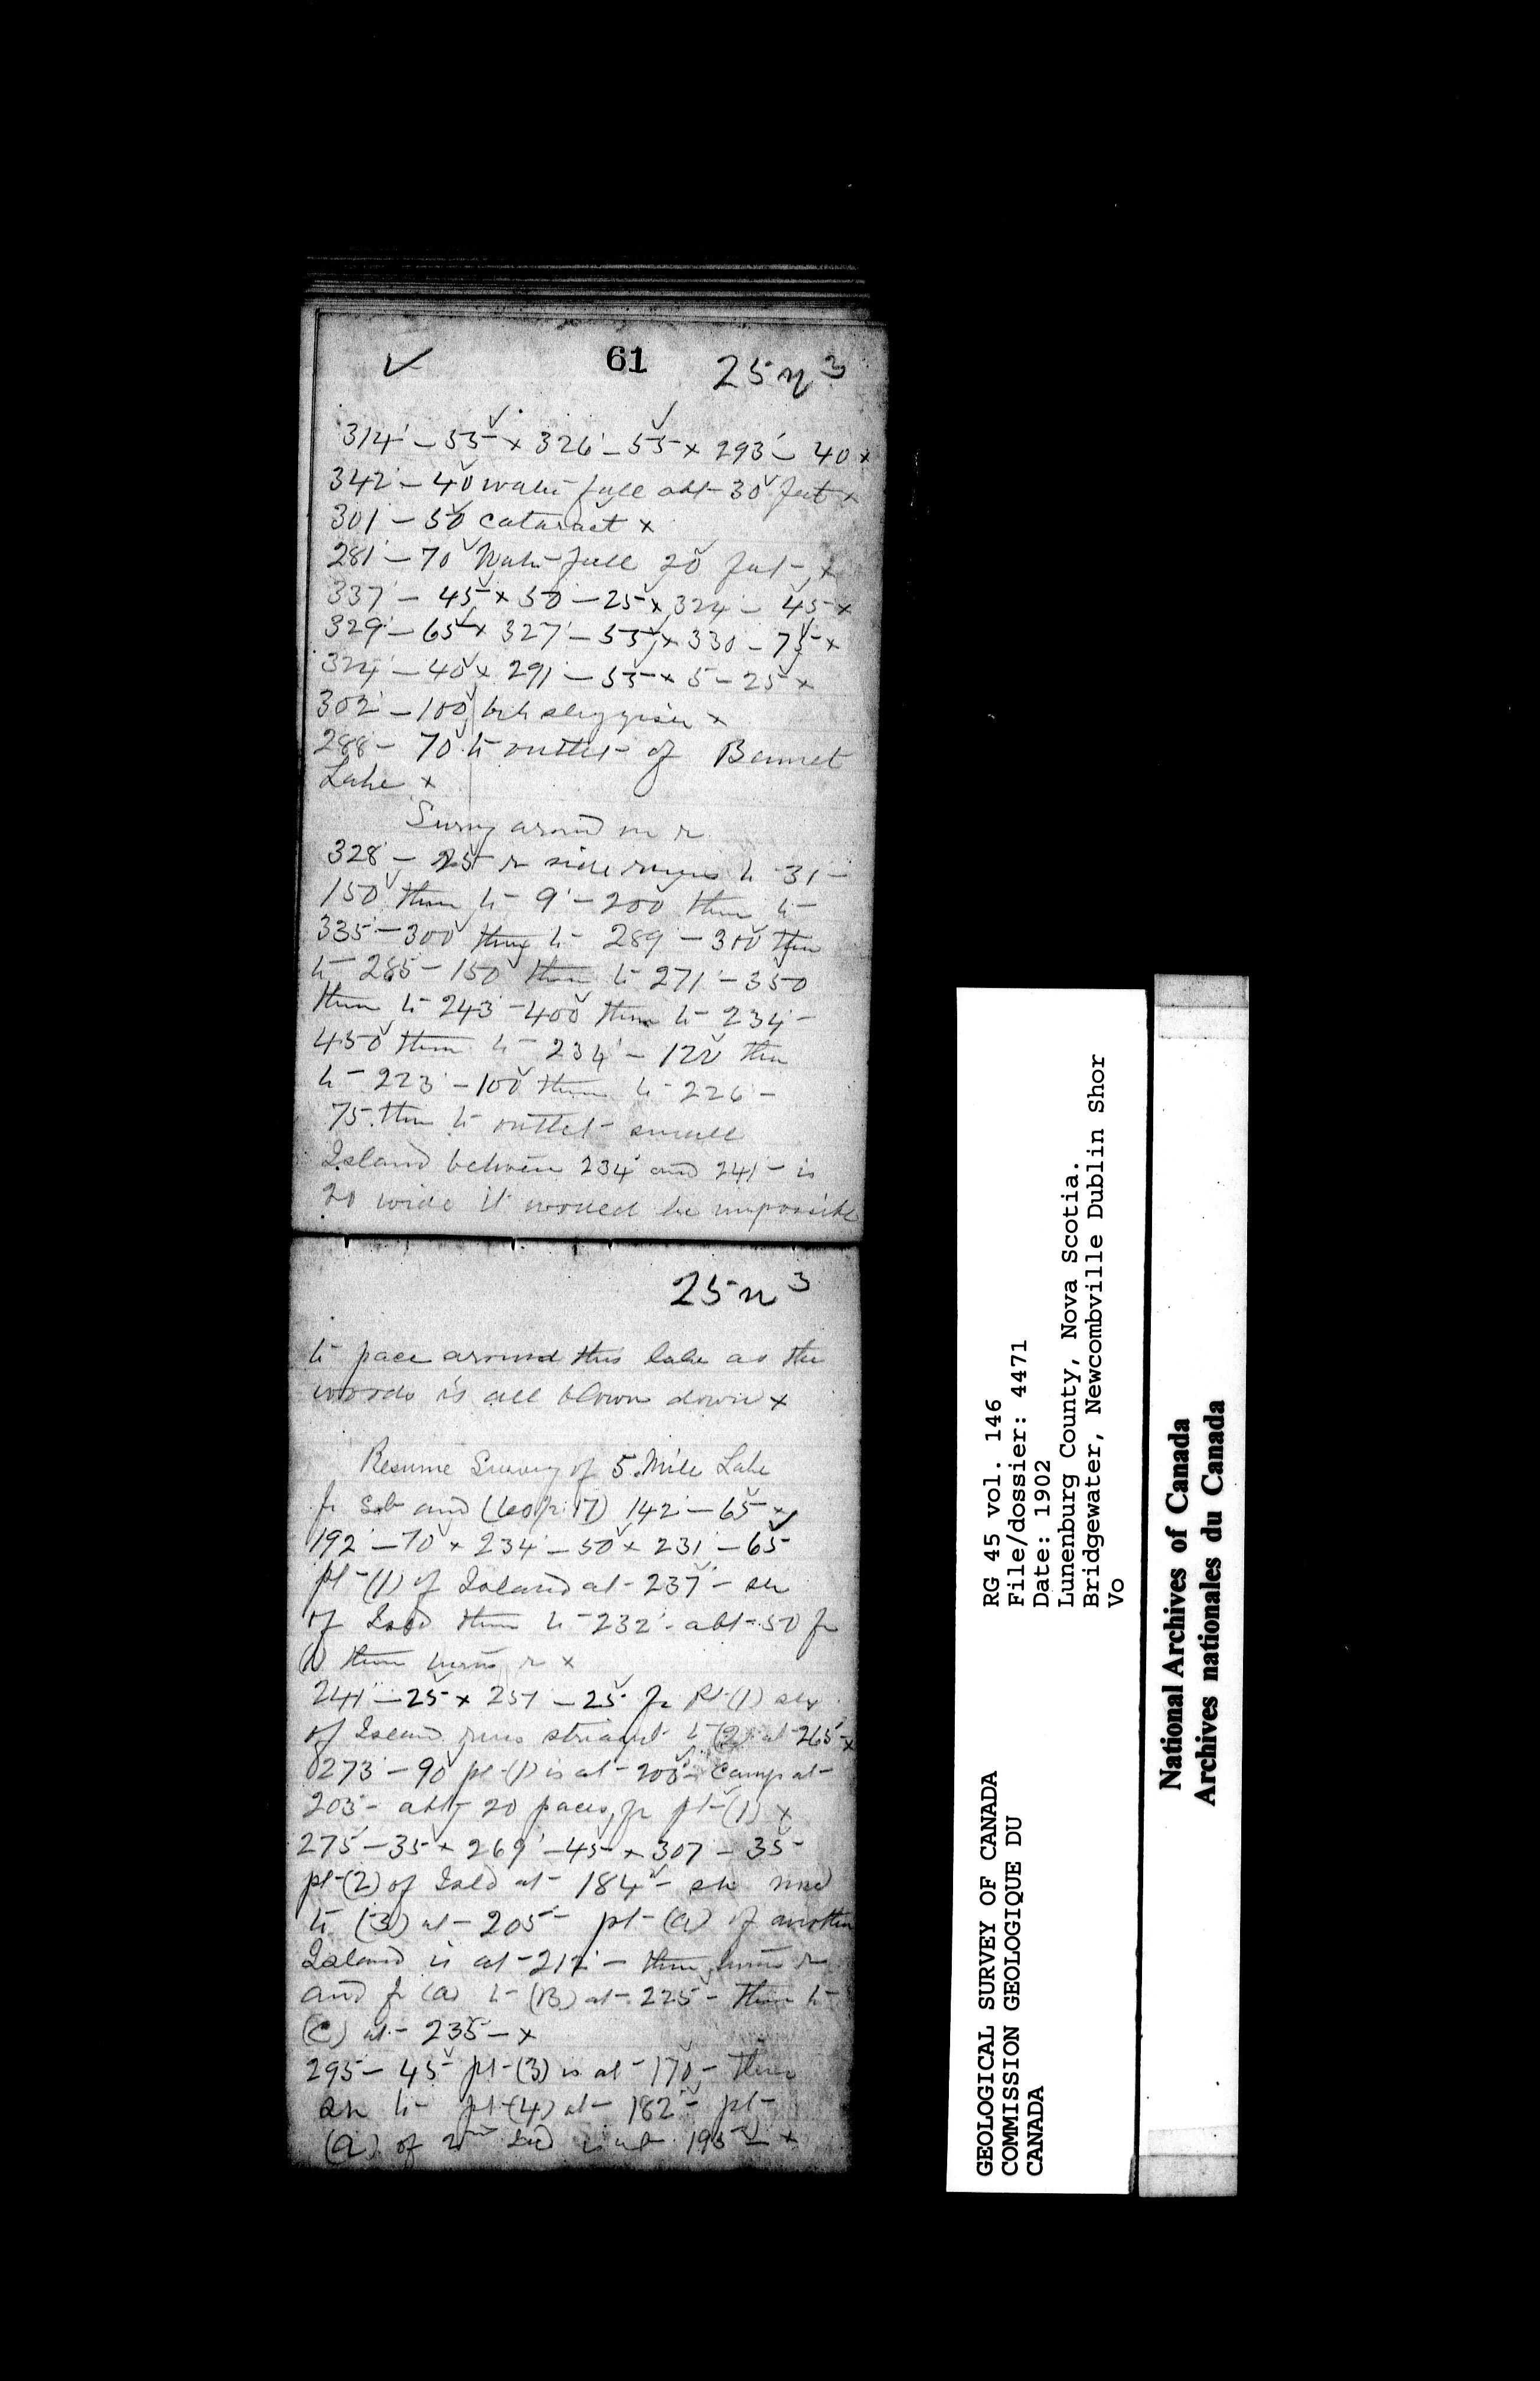 61 25 n 3
314 - 55 x 326 - 55 x 293 - 40 x
342 - 40 water fall abt 30 feet x
301 - 50 cataract x
281 - 70 Water fall 20 feet x
337 - 45 x 50 - 25 x 324 - 45 x
329 - 65 x 327 - 55 x 330 - 75 x
324 - 40 x 291 - 55 x 5 - 25 x
302 - 100 x
288 - 70 to outlet of Bennet
Lake x
Survey around on r
328 - 25 r side runs to 31 -
150 then to 9 - 200 then to
335 - 300 then to 289 - 300 then
to 285 - 150 then to 271 - 350
then to 243 - 400 then to 234 -
450 then to 234 - 120 then
to 223 - 100 then to 226 -
75 then to outlet small
Island between 234 and 241 is
20 wide it would be impossible
25 n 3
to pace around this lake as the
woods is all blown down x
Resume Survey of 5 Mile Lake
fr and 142 - 65 x
192 - 70 x 234 - 50 x 231 - 65
pt (1) of Island at 237 -
of Isld then to 232 - abt 50 fr
(1) then turns r x
241 - 25 x 257 - 25 fr pt (1)
of Island runs straight to (2) at 265 x
273 - 90 pt (1) is at 200 - Camp at
203 - abt 20 paces fr pt (1) x
275 - 35 x 269 - 45 x 307 - 35
pt (2) of Isld at 184 -
to (3) at 205 - pt (a) of another
Island is at 212 - then turns r
and fr (a) to (B) at 225 - then to
(C) at 235 - x
295 - 45 pt (3) is at 170 - then
to pt (4) at 182 - pt
(a) of 2nd 195 - x
GEOLOGICAL SURVEY OF CANADA
COMMISSION GEOLOGIQUE DU
CANADA
RG 45 vol. 146
File/dossier: 4471
Date: 1902
Lunenburg County, Nova Scotia.
Bridgewater, Newcombville Dublin Shor
Vo
National Archives of Canada
Archives nationales du Canada